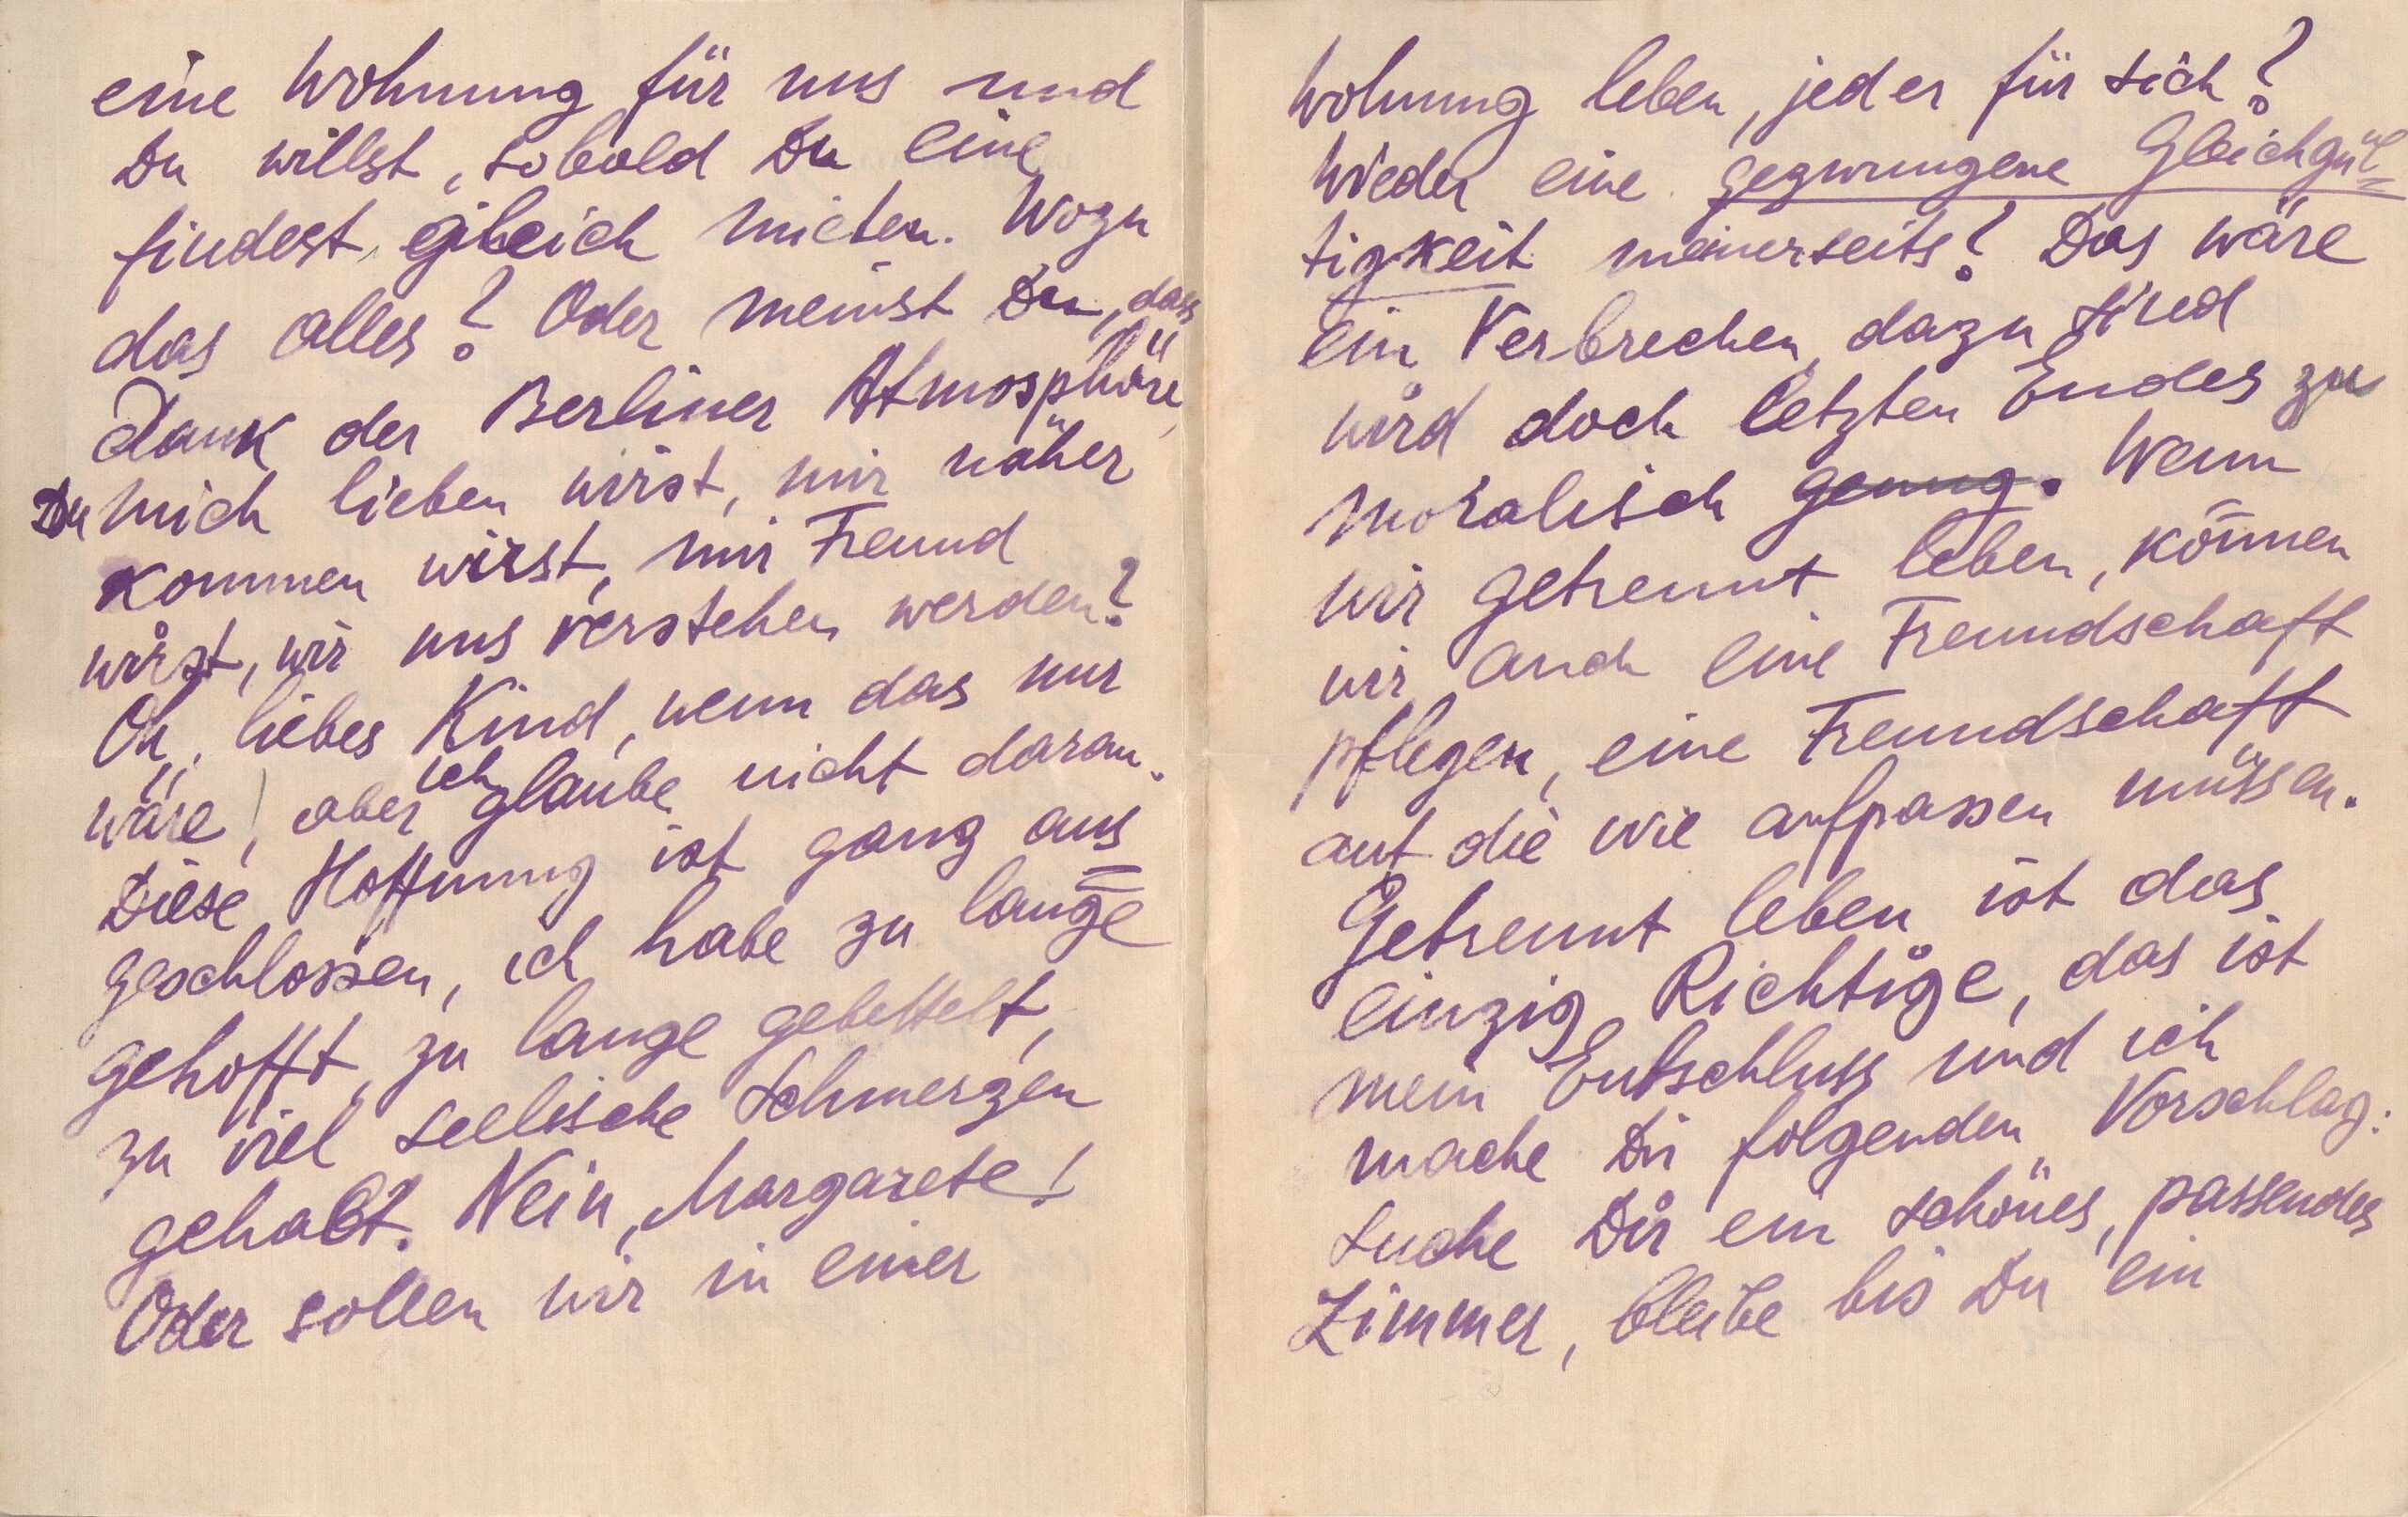 eine Wohnung für uns und
Du willst, sobald Du eine
findest, gleich mieten. Wozu
das alles? Oder meinst Du, dass
dank der Berliner Atmosphäre,
Du mich lieben wirst, mir näher
kommen wirst, mir Freund
wirst, wir uns verstehen werden?
Oh, liebes Kind, wenn das nur
wäre, aber ich glaube nicht daran.
Diese Hoffnung ist ganz aus=
geschlossen, ich habe zu lange
gehofft, zu lange gebettelt,
zu viel seelische Schmerzen
gehabt. Nein, Margarete!
Oder sollen wir in einer
Wohnung leben, jeder für sich?
Wieder eine gezwungene Gleichgül=
tigkeit meinerseits? Das wäre
ein Verbrechen, dazu sind
wird doch letzten Endes zu
moralisch genug. Wenn
wir getrennt leben, können
wir auch eine Freundschaft
pflegen, eine Freundschaft
auf die wie aufpassen müssen.
Getrennt leben ist das
einzig Richtige, das ist
mein Entschluss und ich
mache Dir folgenden Vorschlag:
Suche Dir ein schönes, passendes
Zimmer, bleibe bis Du ein